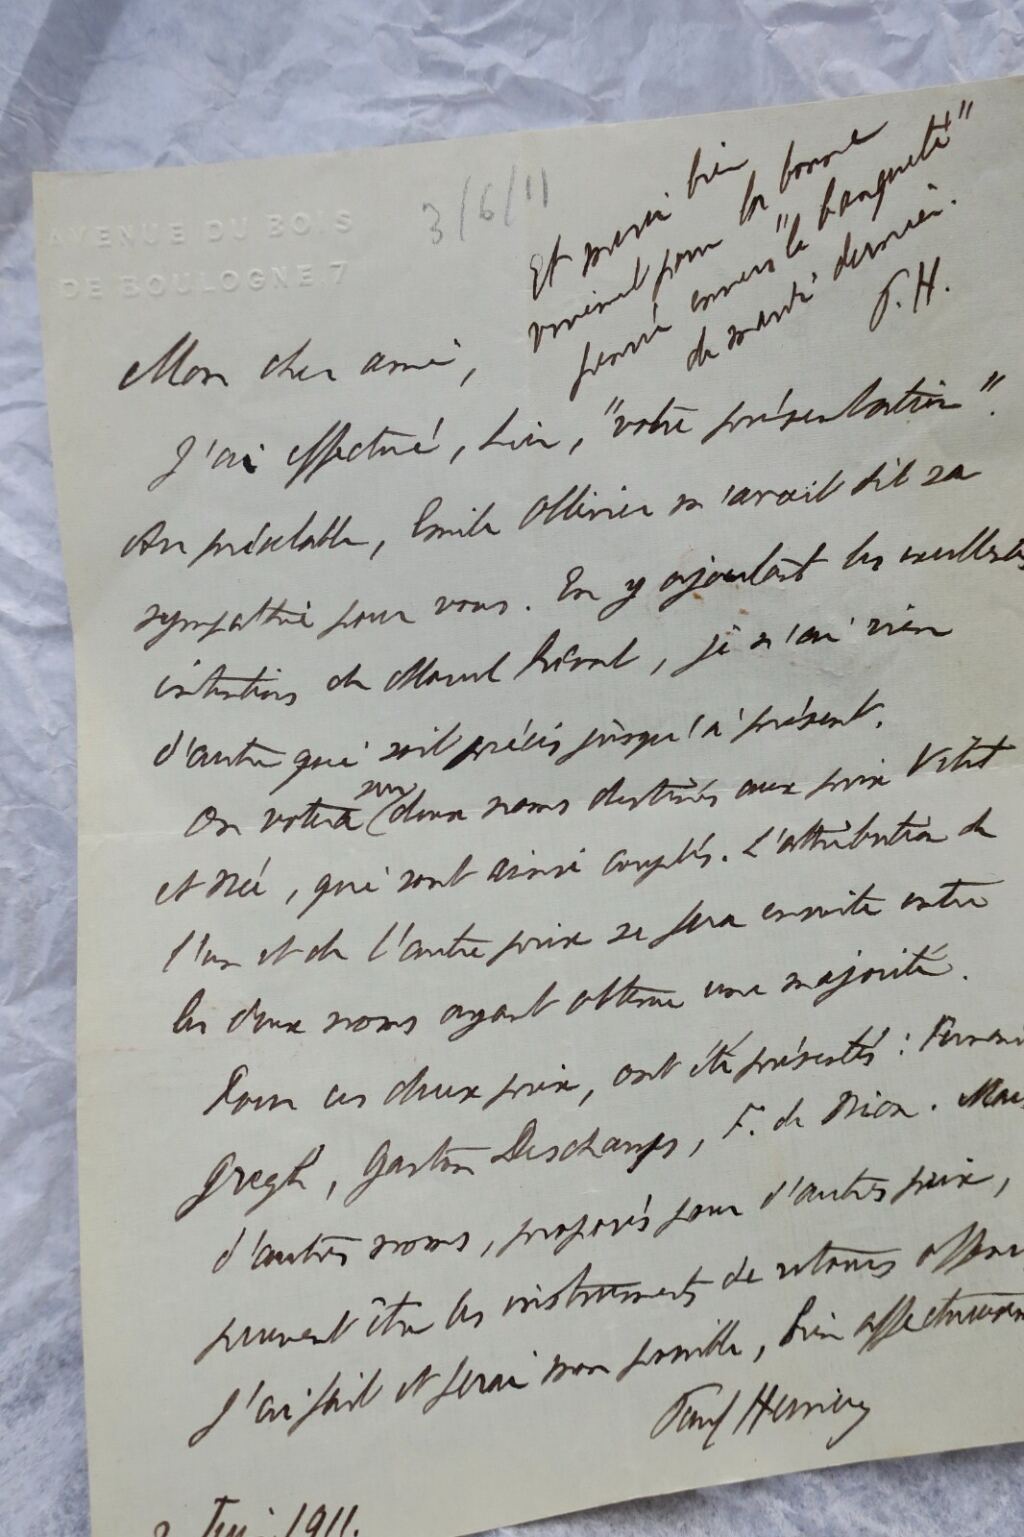 AVENUE DU BOIS
DE BOULOGNE. 7
3/6/11
Et merci bien
vivement pour la bonne
pensée envers "le banqueté"
de mardi dernier.
P. H.
Mon cher ami,
J'ai effectué, hier, "votre présentation".
Au préalable, Emile Ollivier m'avait dit sa
sympathie pour vous. En y ajoutant les excellentes
intentions de Marcel Prévost, je n'ai rien
d'autre qui soit précis jusqu'à présent.
On votera sur deux noms destinés aux prix Vitet
et Née, qui sont ainsi couplés. L'attribution de
l'un et de l'autre prix se fera ensuite entre
les deux noms ayant obtenu une majorité.
Pour ces deux prix, ont été présentés : Fernand
Gregh, Gaston Deschamps, F. de Nion. Mais
d'autres noms, proposés pour d'autres prix,
peuvent être les instruments de retours
J'ai fait et ferai mon possible, bien affectueusement
Paul Hervieu
Juin 1911.